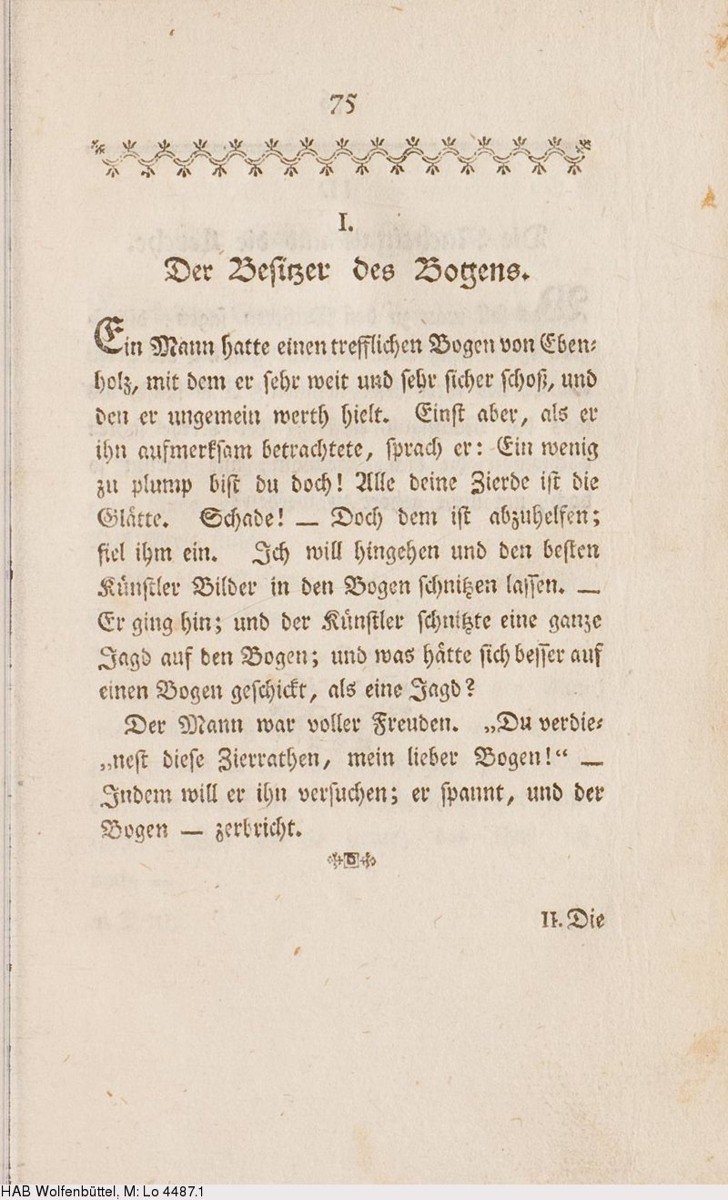 75
I.
Der Beſitzer des Bogens.
Ein Mann hatte einen trefflichen Bogen von Eben⸗
holz, mit dem er ſehr weit und ſehr ſicher ſchoß, und
den er ungemein werth hielt. Einſt aber, als er
ihn aufmerkſam betrachtete, ſprach er: Ein wenig
zu plump biſt du doch! Alle deine Zierde iſt die
Glaͤtte. Schade! — Doch dem iſt abzuhelfen;
fiel ihm ein. Ich will hingehen und den beſten
Kuͤnſtler Bilder in den Bogen ſchnitzen laſſen. —
Er ging hin; und der Kuͤnſtler ſchnitzte eine ganze
Jagd auf den Bogen; und was haͤtte ſich beſſer auf
einen Bogen geſchickt, als eine Jagd?
Der Mann war voller Freuden. „Du verdie⸗
„neſt dieſe Zierrathen, mein lieber Bogen!“ —
Indem will er ihn verſuchen; er ſpannt, und der
Bogen — zerbricht.
II. Die
HAB Wolfenbüttel, M: Lo 4487.1